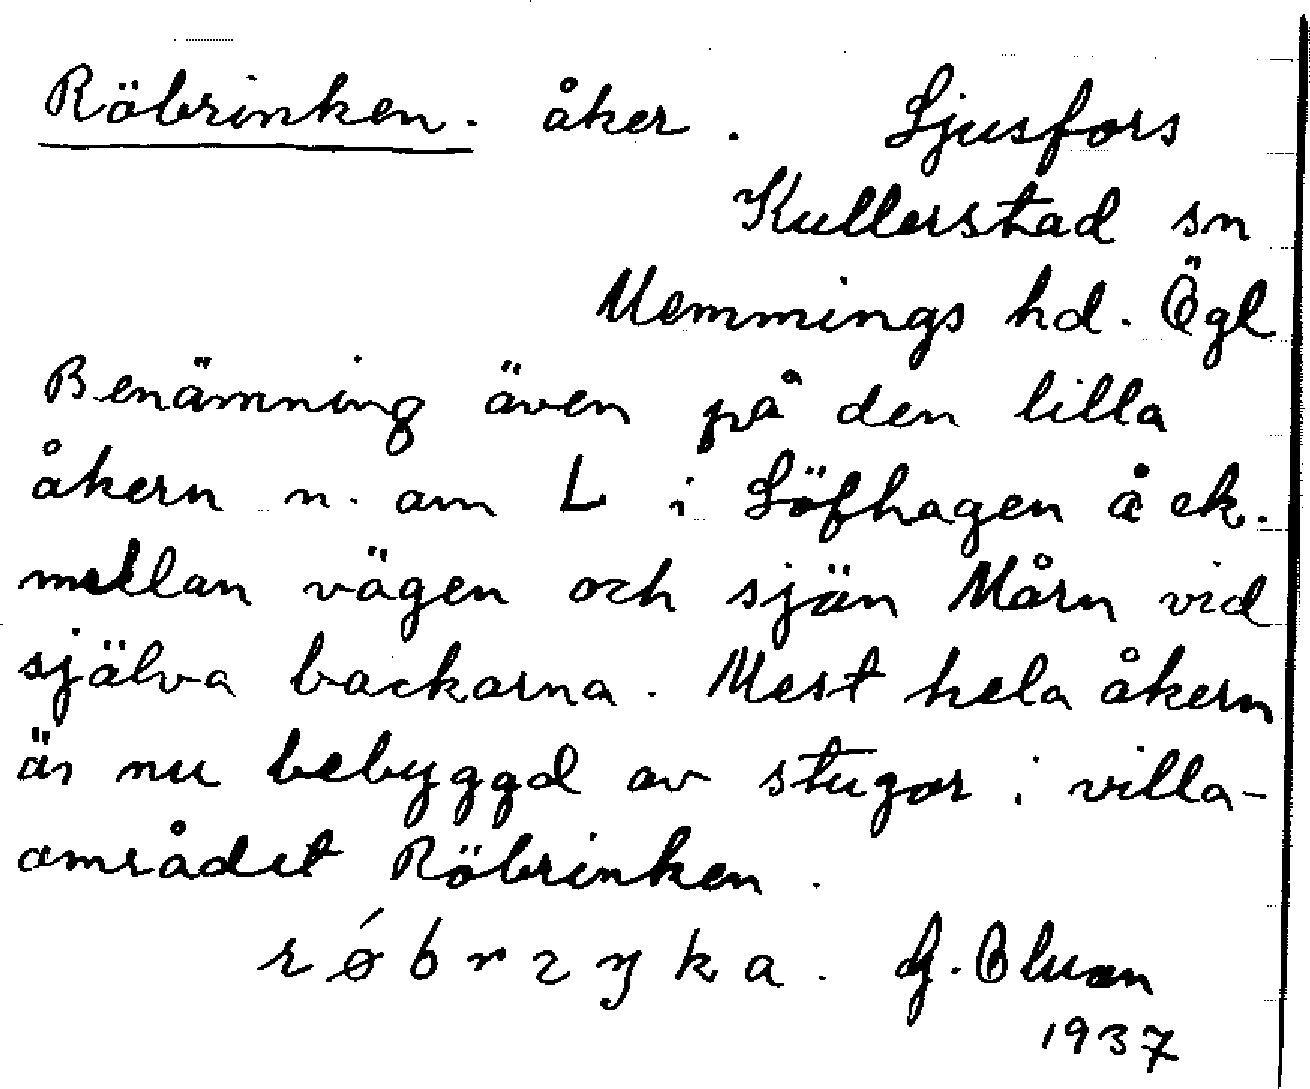 Röbrinken. åker. Ljusfors
Kullerstad sn
Memmings hd. Ögl
Benämning även på den lilla
åkern n. om L i Löfhagen å ek.
mellan vägen och sjön Mårn vid
själva backarna. Mest hela åkern
är nu bebyggd av stugor i villa-
området Röbrinken.
röbrɩŋka. G.
1937